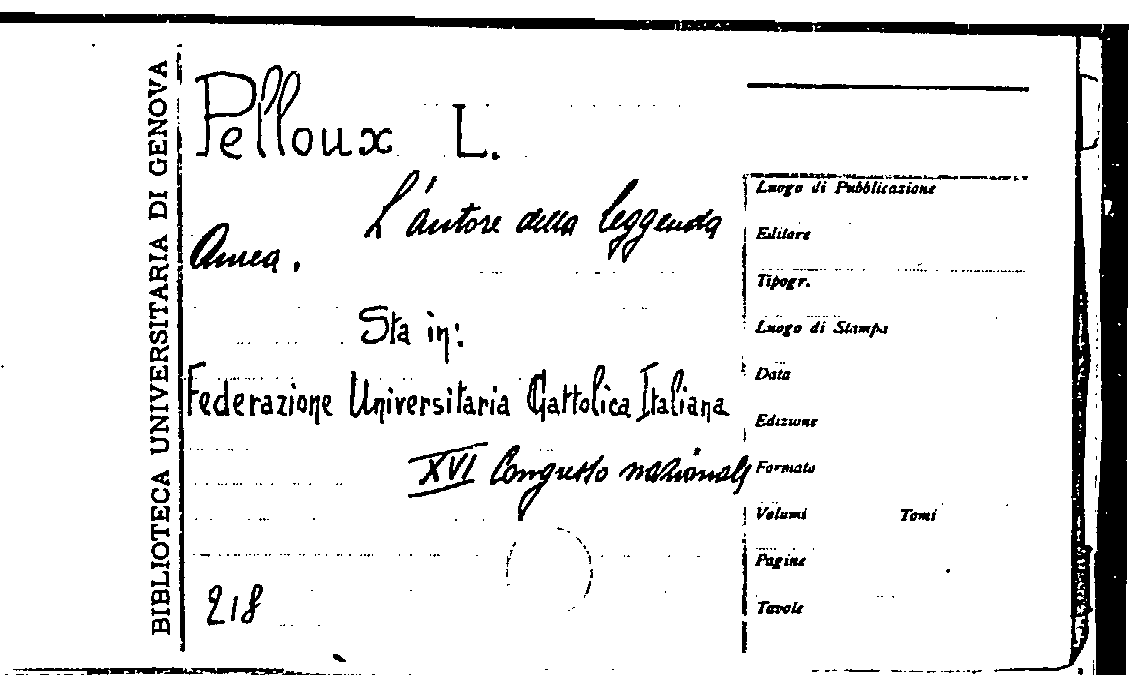 BIBLIOTECA UNIVERSITARIA DI GENOVA
Pelloux L.
L'autore della leggenda
Aurea.
Sta in:
Federazione Universitaria Cattolica Italiana
XVI Congresso nazionale
218
Luogo di Pubblicazione
Editore
Tipogr.
Luogo di Stampa
Data
Edizione
Formato
Volumi Tomi
Pagine
Tavole